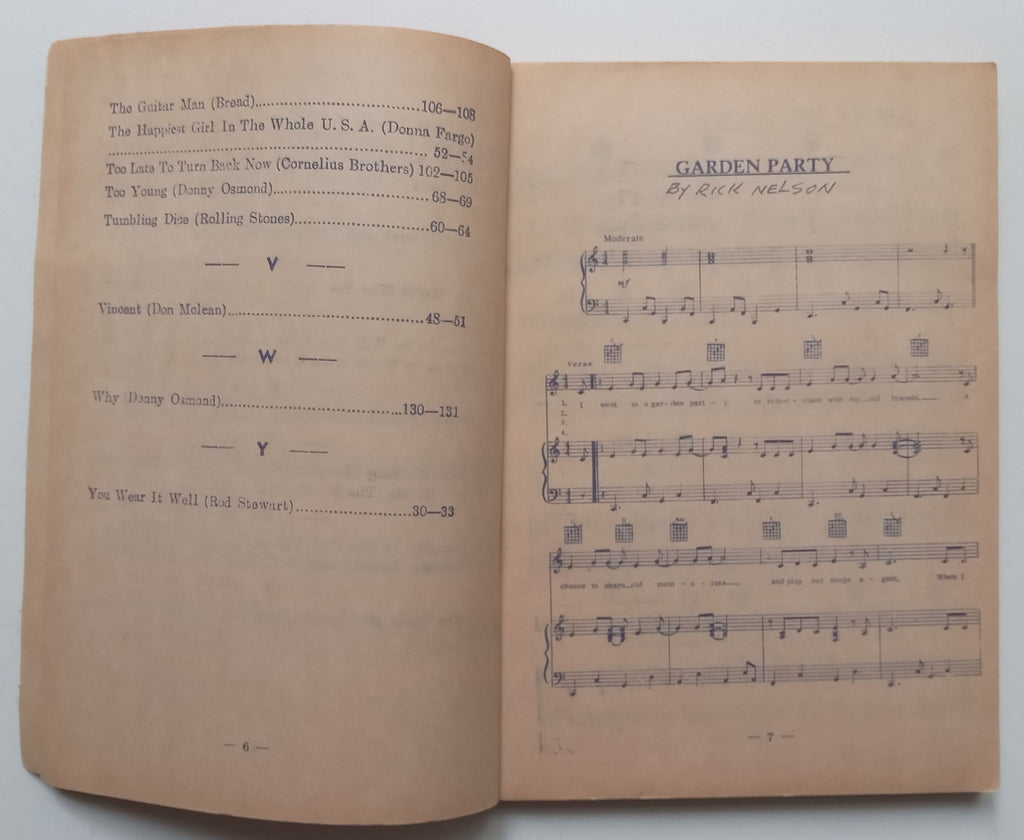 The Guitar Man (Bread)..................................106—108
The Happiest Girl In The Whole U. S. A. (Donna Fargo)
.................................................................. 52—54
Too Late To Turn Back Now (Cornelius Brothers) 102—105
Too Young (Donny Osmond)................................68—69
Tumbling Dice (Rolling Stones)...........................60—64
—— V ——
Vincent (Don Mclean).......................................48—51
—— W ——
Why (Donny Osmond).....................................130—131
—— Y ——
You Wear It Well (Rod Stewart).......................30—33
— 6 —
GARDEN PARTY
BY RICK NELSON
Moderate
mf
Verse
1. I went to a gar-den part-y to rem-i-nisce with my old friends. A
2.
3.
4.
chance to share old mem-o-ries and play our songs a-gain. When I
— 7 —